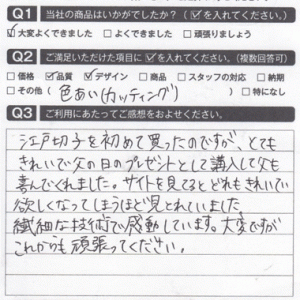 Q1 当社の商品はいかがでしたか？（☑を入れてください。）
☑大変よくできました □よくできました □頑張りましょう
Q2 ご満足いただけた項目に☑を入れてください。（複数回答可）
□価格 ☑品質 ☑デザイン □商品 □スタッフの対応 □納期
□その他（色あい(カッティング)） □特になし
Q3 ご利用にあたってご感想をおよせください。
江戸切子を初めて買ったのですが、とても
きれいで父の日のプレゼントとして購入して父も
喜んでくれました。サイトを見てるとどれもきれいで
欲しくなってしまうほど見とれいました
繊細な技術で感動しています。大変ですが
これからも頑張ってください。